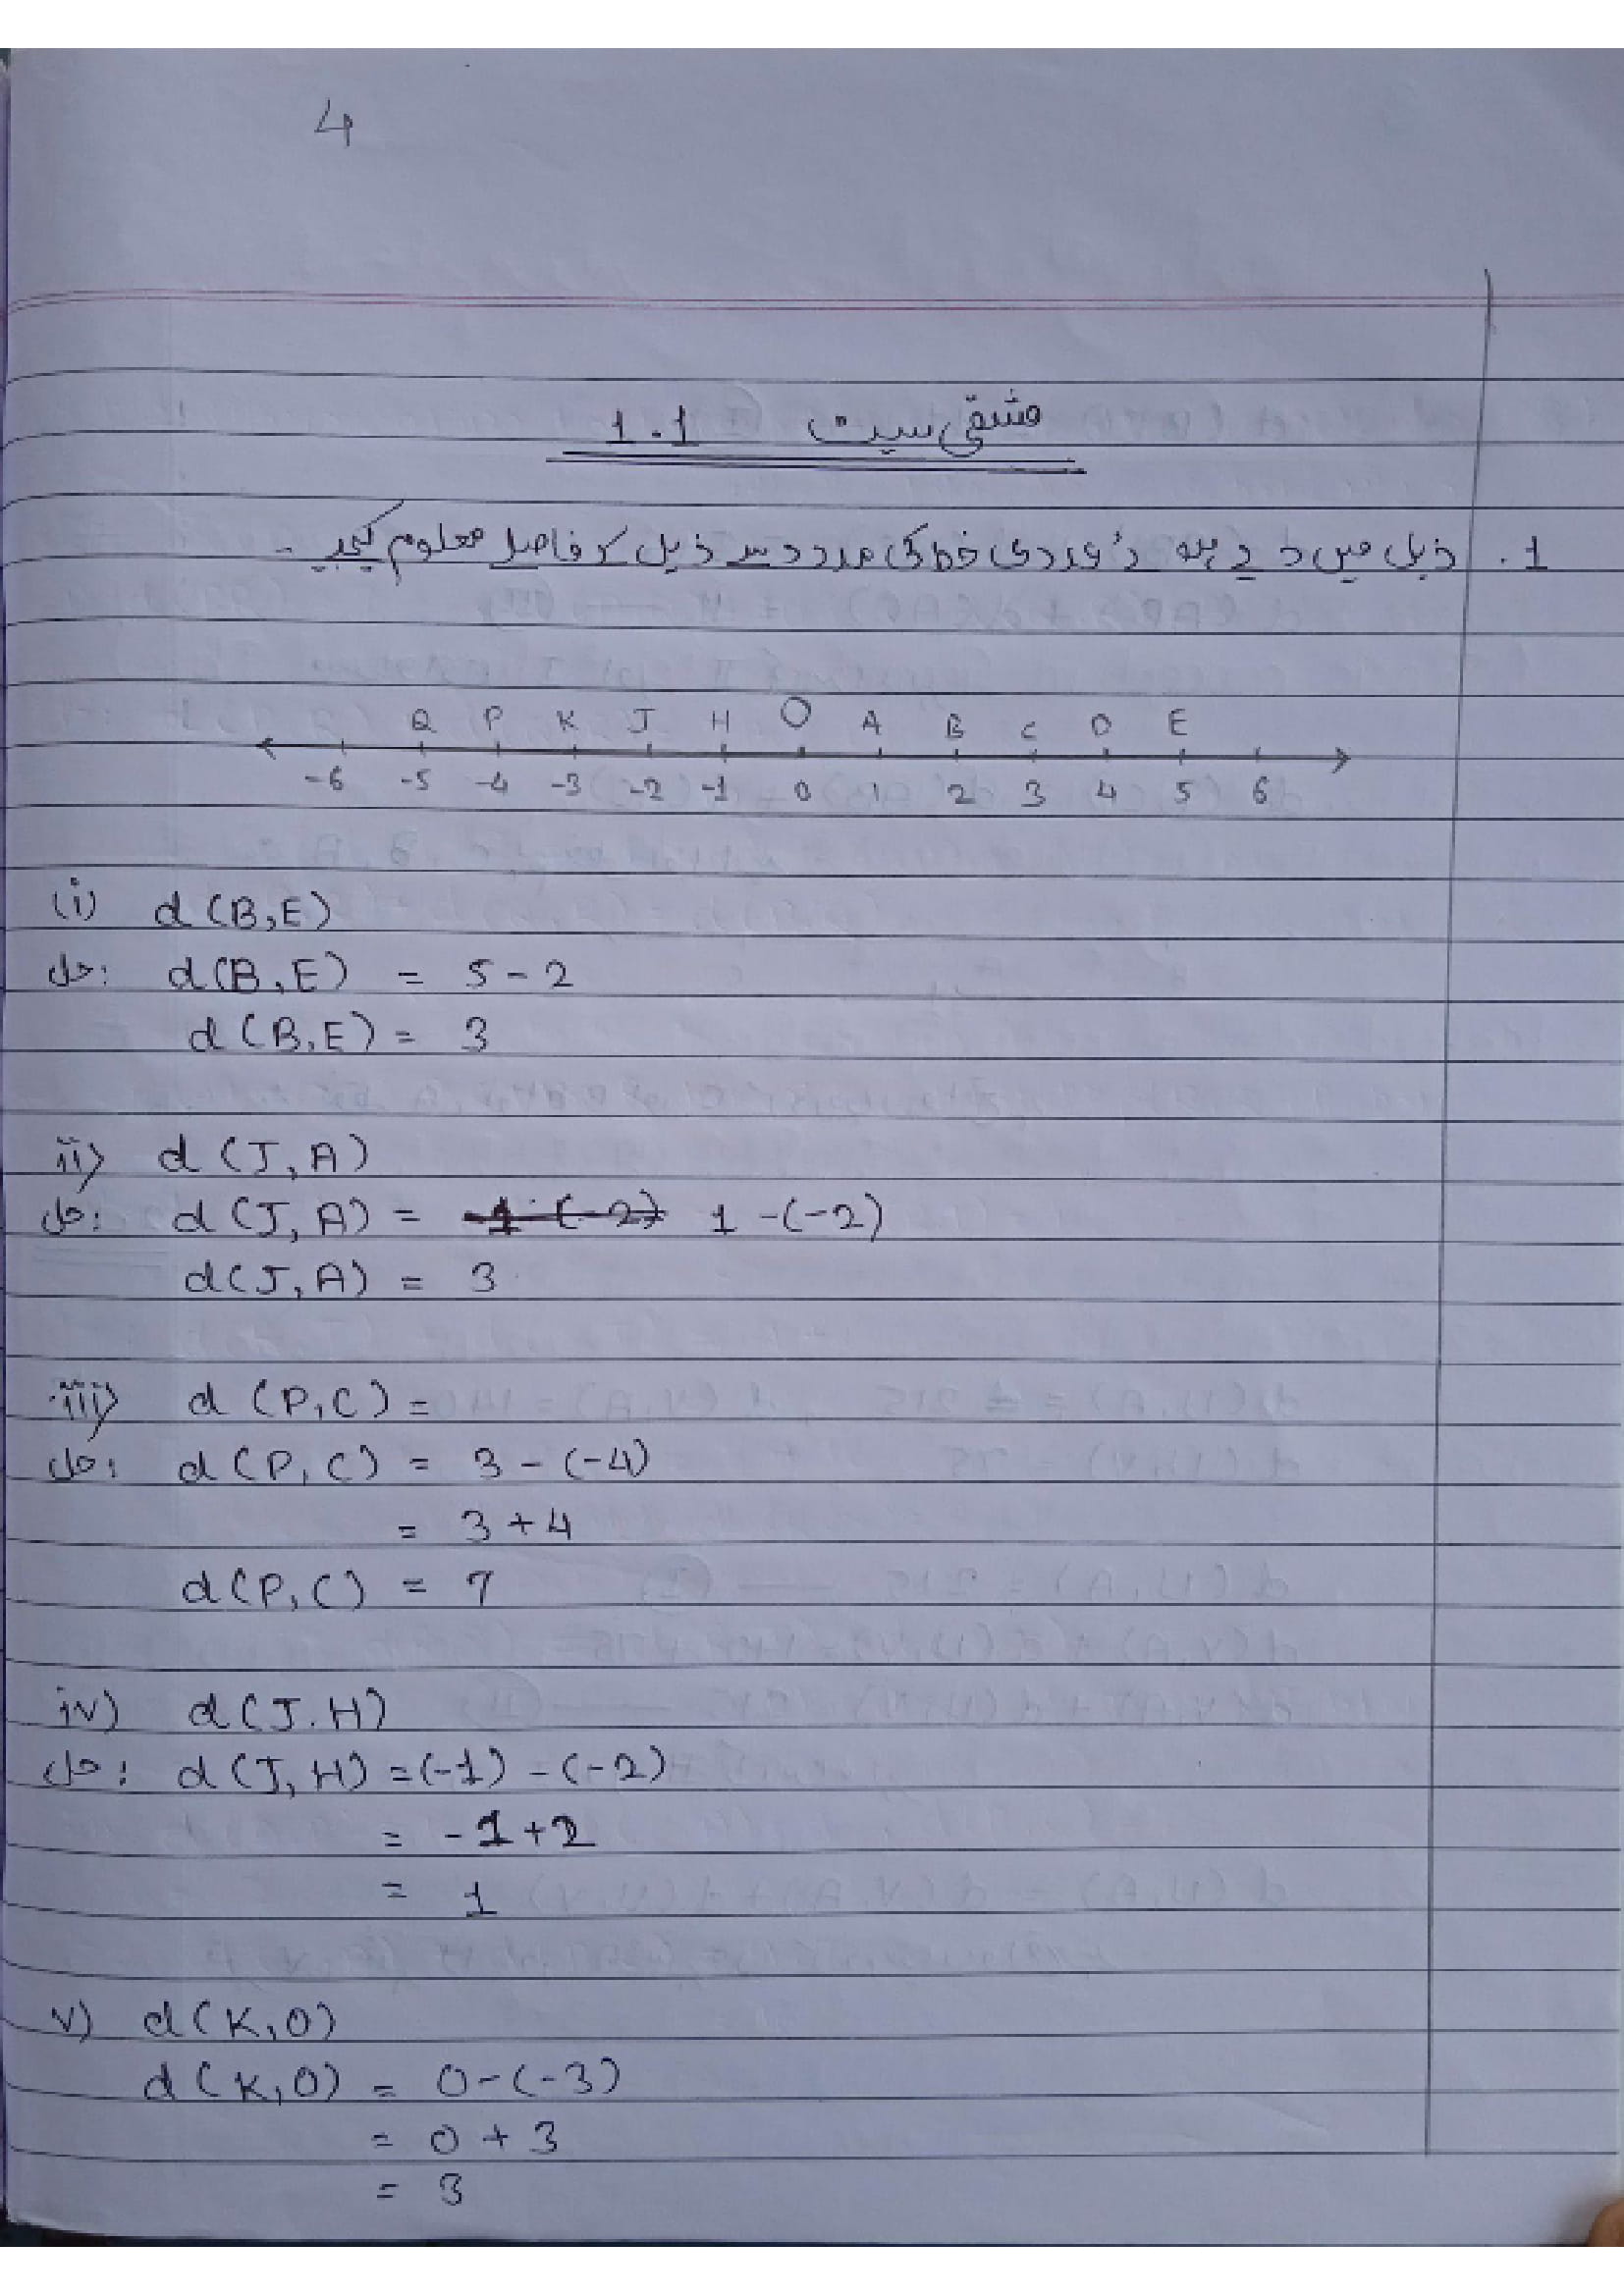 4
مشقی سیٹ 1.1
1. ذیل میں دیے ہوئے عددی خط کی مدد سے ذیل کے فاصلے معلوم کیجیے۔
Q P K J H O A B C D E
-6 -5 -4 -3 -2 -1 0 1 2 3 4 5 6
(i) d(B,E)
حل: d(B,E) = 5-2
d(B,E) = 3
ii) d(J,A)
حل: d(J,A) = -1-(-2) 1-(-2)
d(J,A) = 3
iii) d(P,C) =
حل: d(P,C) = 3-(-4)
= 3+4
d(P,C) = 7
iv) d(J.H)
حل: d(J,H) =(-1)-(-2)
= -1+2
= 1
v) d(K,O)
d(K,O) = 0-(-3)
= 0+3
= 3